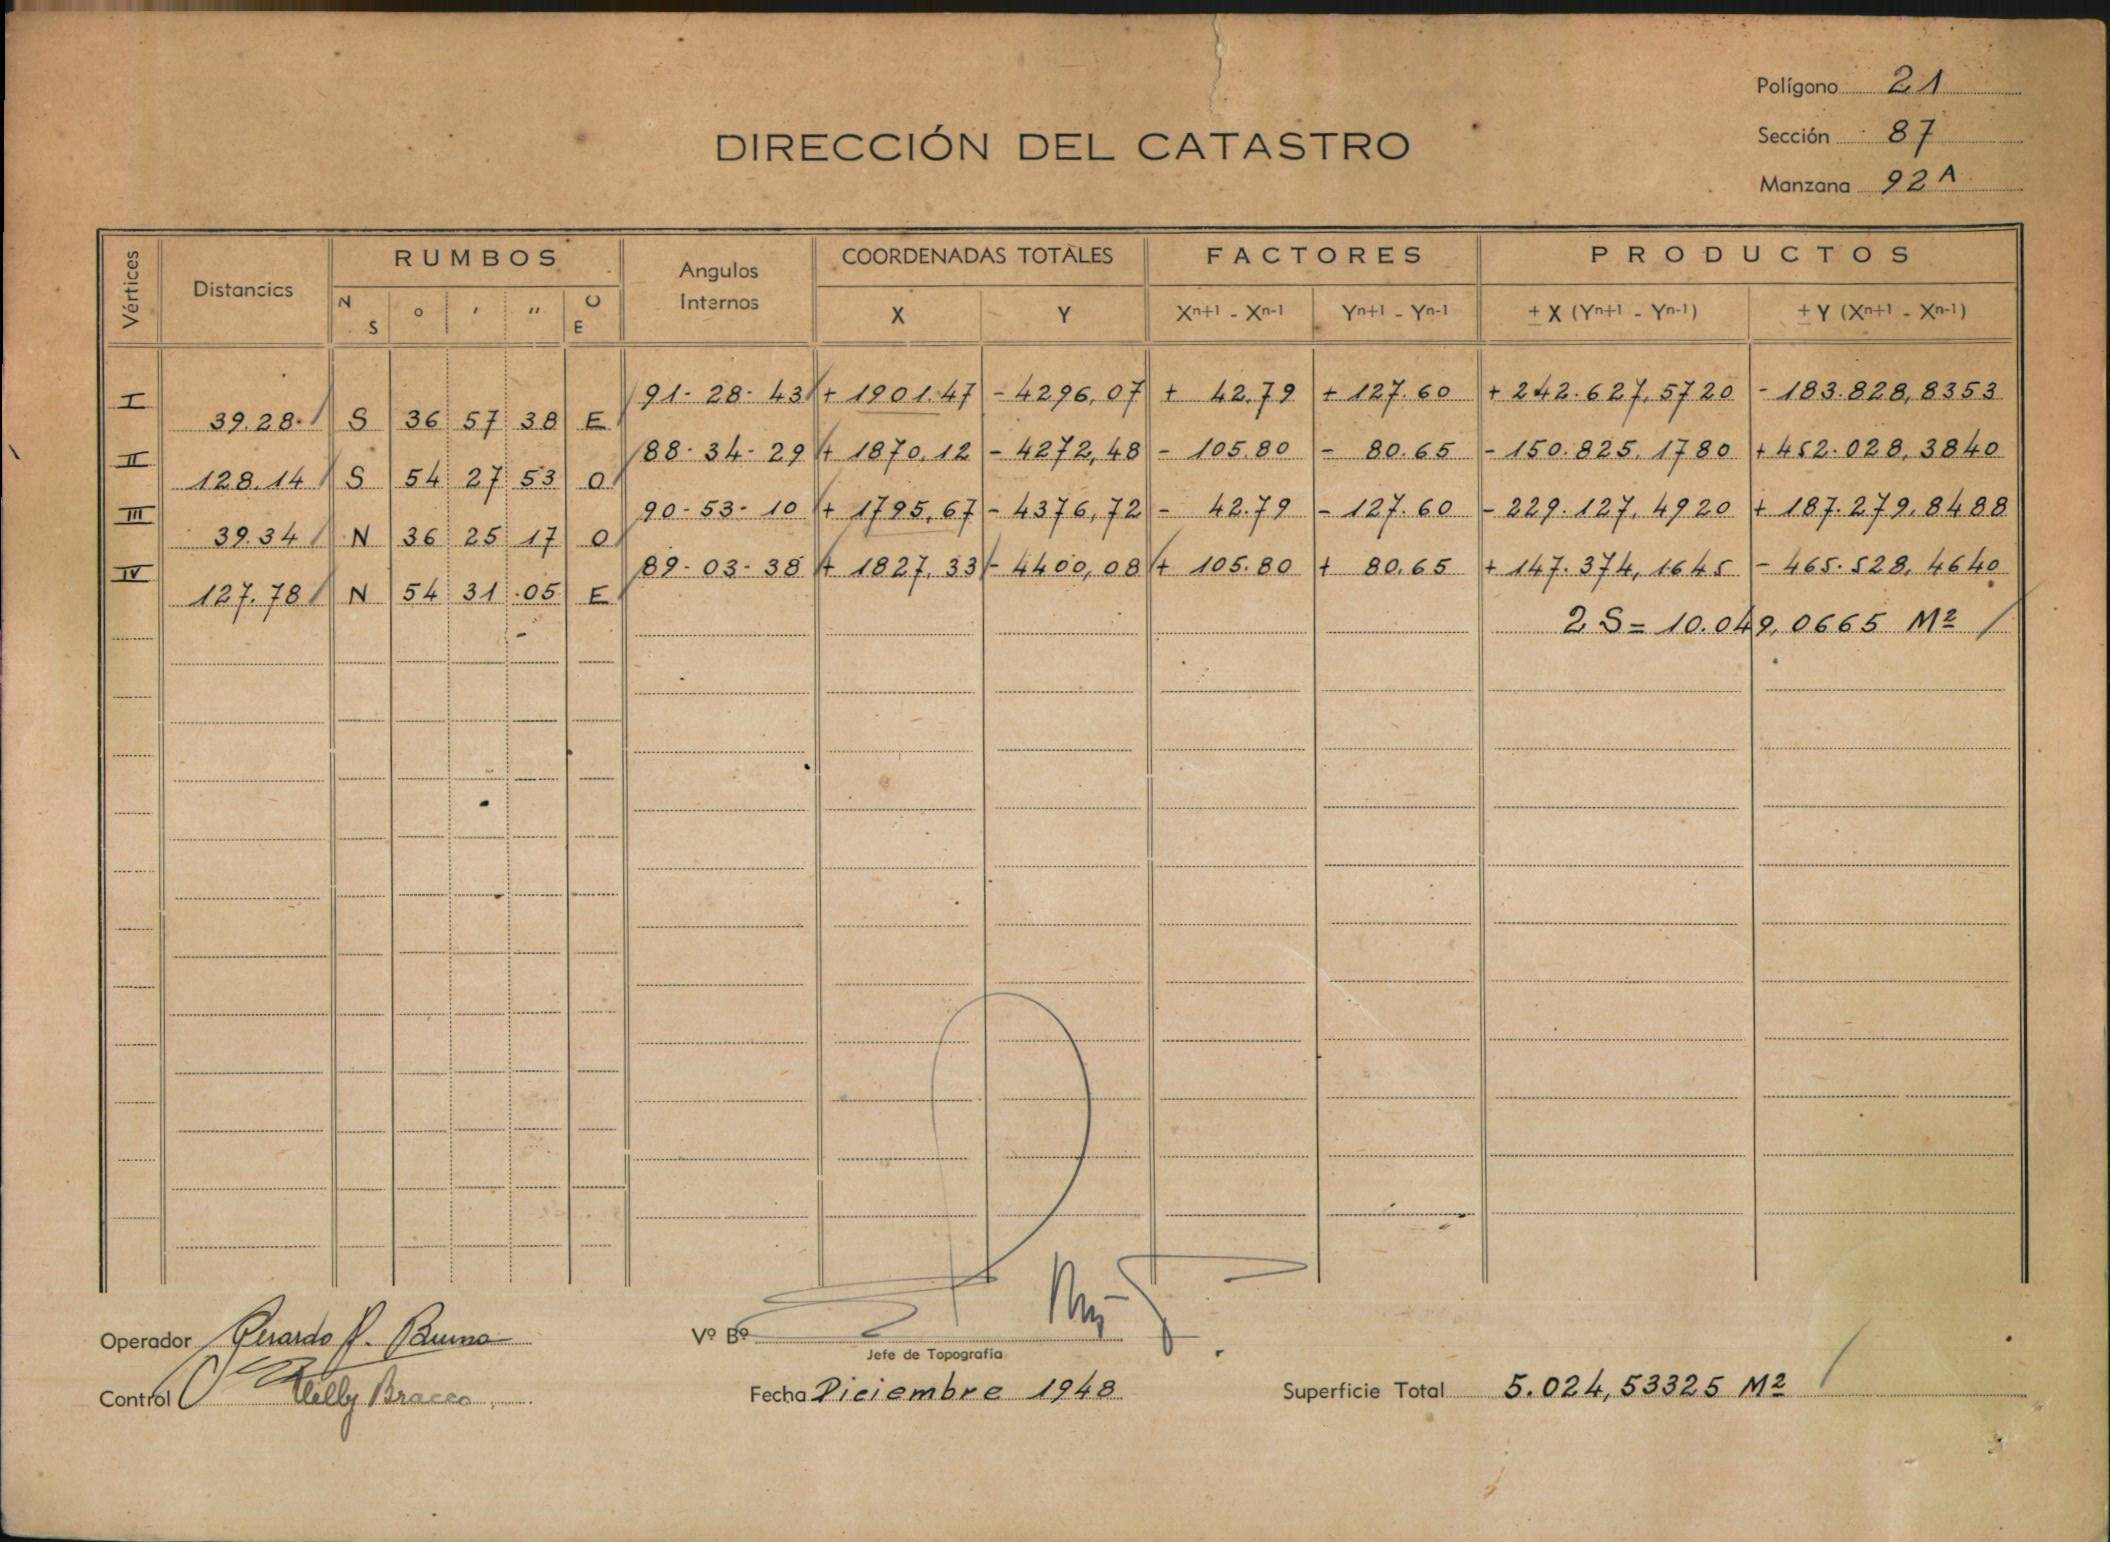 Polígono 21
Sección 87
Manzana 92 A
DIRECCIÓN DEL CATASTRO
Vértices Distancics RUMBOS Angulos Internos COORDENADAS TOTALES FACTORES PRODUCTOS
N S ° ′ ″ O E X Y Xn+1 - Xn-1 Yn+1 - Yn-1 ± X (Yn+1 - Yn-1) ± Y (Xn+1 - Xn-1)
I 91-28-43 + 1901.47 - 4296,07 + 42,79 + 127.60 + 242.627,5720 - 183.828,8353
39.28 S 36 57 38 E
II 88-34-29 + 1870,12 - 4272,48 - 105.80 - 80.65 - 150.825,1780 + 452.028,3840
128.14 S 54 27 53 O
III 90-53-10 + 1795,67 - 4376,72 - 42.79 - 127.60 - 229.127,4920 + 187.279,8488
39.34 N 36 25 17 O
IV 89-03-38 + 1827,33 - 4400,08 + 105.80 + 80,65 + 147.374,1645 - 465.528,4640
127.78 N 54 31 05 E
2 S = 10.049,0665 M²
Operador Gerardo P. Bruno
Vº Bº
Jefe de Topografía
Control Willy Bracco
Fecha Diciembre 1948
Superficie Total 5.024,53325 M²